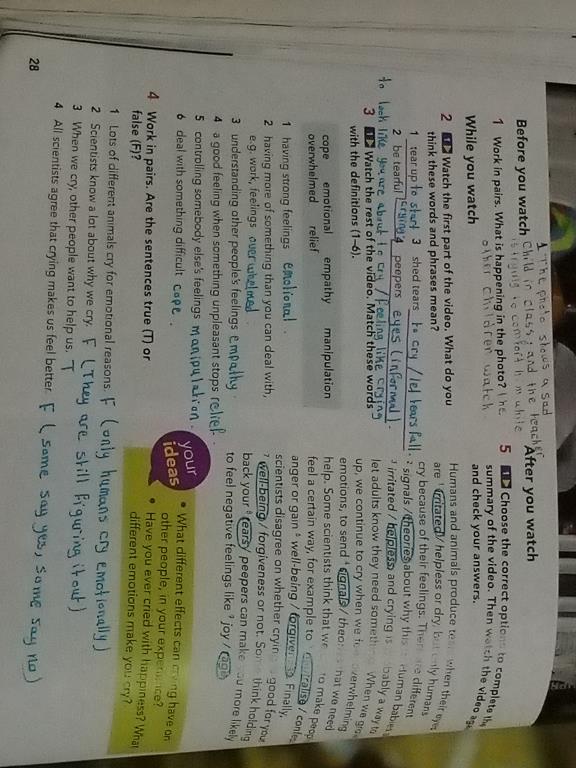 Before you watch
1 The photo shows a sad
child in class, and the teacher
is trying to comfort him while
1 Work in pairs. What is happening in the photo? the
other children watch
While you watch
2 Watch the first part of the video. What do you
think these words and phrases mean?
1 tear up to start 3 shed tears to cry / let tears fall.
2 be tearful crying 4 peepers eyes (informal).
to look like you are about to cry / feeling like crying
3 Watch the rest of the video. Match these words
with the definitions (1–6).
cope emotional empathy manipulation
overwhelmed relief
1 having strong feelings emotional
2 having more of something than you can deal with,
e.g. work, feelings overwhelmed.
3 understanding other people's feelings empathy
4 a good feeling when something unpleasant stops relief.
5 controlling somebody else's feelings manipulation.
6 deal with something difficult cope.
4 Work in pairs. Are the sentences true (T) or
false (F)?
1 Lots of different animals cry for emotional reasons. F (only humans cry emotionally)
2 Scientists know a lot about why we cry. F (They are still figuring it out)
3 When we cry, other people want to help us. T
4 All scientists agree that crying makes us feel better. F (some say yes, some say no)
28
After you watch
5 Choose the correct options to complete the
summary of the video. Then watch the video
and check your answers.
Humans and animals produce when their eyes
are 1 irritated / helpless or dry, but only humans
cry because of their feelings. There are different
2 signals / theories about why this. Human babies
3 irritated / helpless and crying is probably a way to
let adults know they need something. When we grow
up, we continue to cry when we overwhelming
emotions, to send 4 signals / theories that we need
help. Some scientists think that we to make people
feel a certain way, for example to
anger or gain 6 well-being / forgiveness. Finally,
scientists disagree on whether crying good for your
7 well-being / forgiveness or not. Some think holding
back your 8 teary / peepers can make you more likely
to feel negative feelings like 9 joy / rage
your
ideas
• What different effects can crying have on
other people, in your experience?
• Have you ever cried with happiness? What
different emotions make you cry?